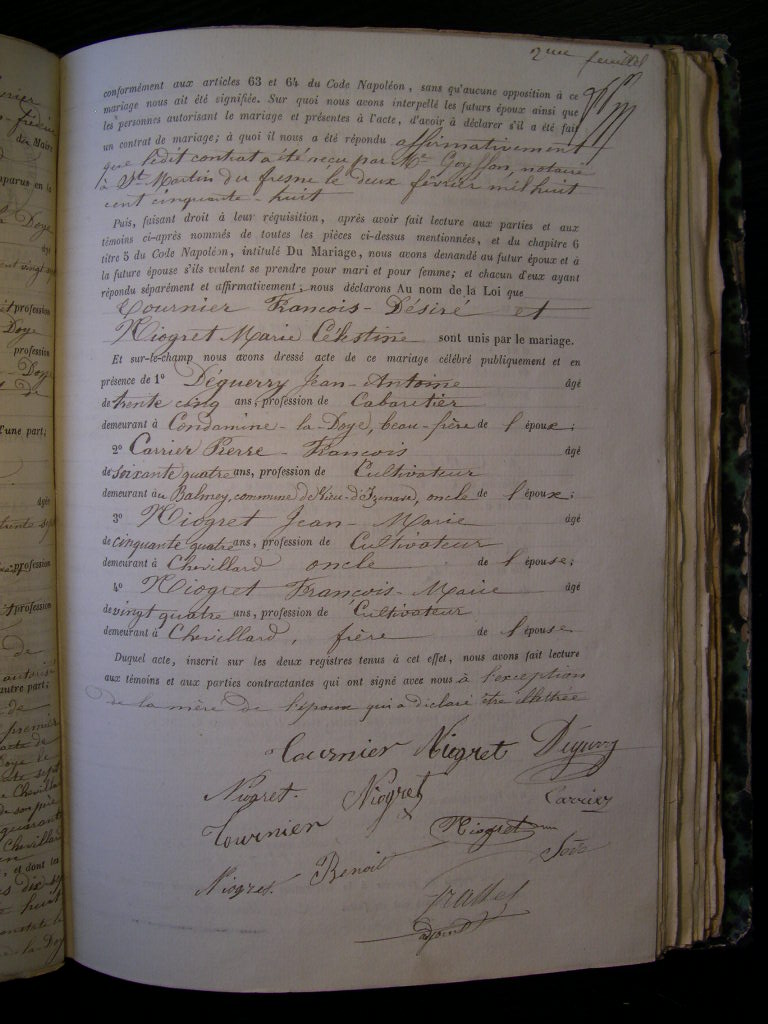 2me feuillet
conformément aux articles 63 et 64 du Code Napoléon, sans qu'aucune opposition à ce
mariage nous ait été signifiée. Sur quoi nous avons interpellé les futurs époux ainsi que
les personnes autorisant le mariage et présentes à l'acte, d'avoir à déclarer s'il a été fait
un contrat de mariage; à quoi il nous a été répondu affirmativement
que ledit contrat a été reçu par Me Goyffon, notaire
à St Martin du fresne le deux février mil huit
cent cinquante-huit
Puis, faisant droit à leur réquisition, après avoir fait lecture aux parties et aux
témoins ci-après nommés de toutes les pièces ci-dessus mentionnées, et du chapitre 6
titre 5 du Code Napoléon, intitulé Du Mariage, nous avons demandé au futur époux et à
la future épouse s'ils veulent se prendre pour mari et pour femme; et chacun d'eux ayant
répondu séparément et affirmativement; nous déclarons Au nom de la Loi que
Tournier François-Désiré et
Niogret Marie Célestine sont unis par le mariage.
Et sur-le-champ nous avons dressé acte de ce mariage célébré publiquement et en
présence de 1° Déguerry Jean-Antoine âgé
de trente cinq ans, profession de Cabaretier
demeurant à Condamine-la-Doye, beau-frère de l'époux;
2° Carrier Pierre-François âgé
de soixante quatre ans, profession de Cultivateur
demeurant au Balmey, commune de Vieu-d'Izenave, oncle de l'époux;
3° Niogret Jean-Marie âgé
de cinquante quatre ans, profession de Cultivateur
demeurant à Chevillard oncle de l'épouse;
4° Niogret François-Marie âgé
de vingt quatre ans, profession de Cultivateur
demeurant à Chevillard, frère de l'épouse
Duquel acte, inscrit sur les deux registres tenus à cet effet, nous avons fait lecture
aux témoins et aux parties contractantes qui ont signé avec nous à l'exception
de la mère de l'époux qui a déclaré être illettrée
Tournier Niogret Déguerry
Niogret. Niogret Carrier
Tournier Niogret
Niogret. Benoit
adjoint